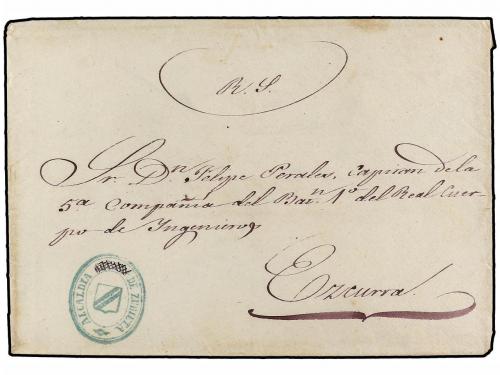 R. S.
Sr. Dn. Felipe Perales, Capitan de la
5ª Compañia del Batn. 1º del Real Cuer-
po de Ingenieros
Ezcurra.
ALCALDIA DE ZUBIETA